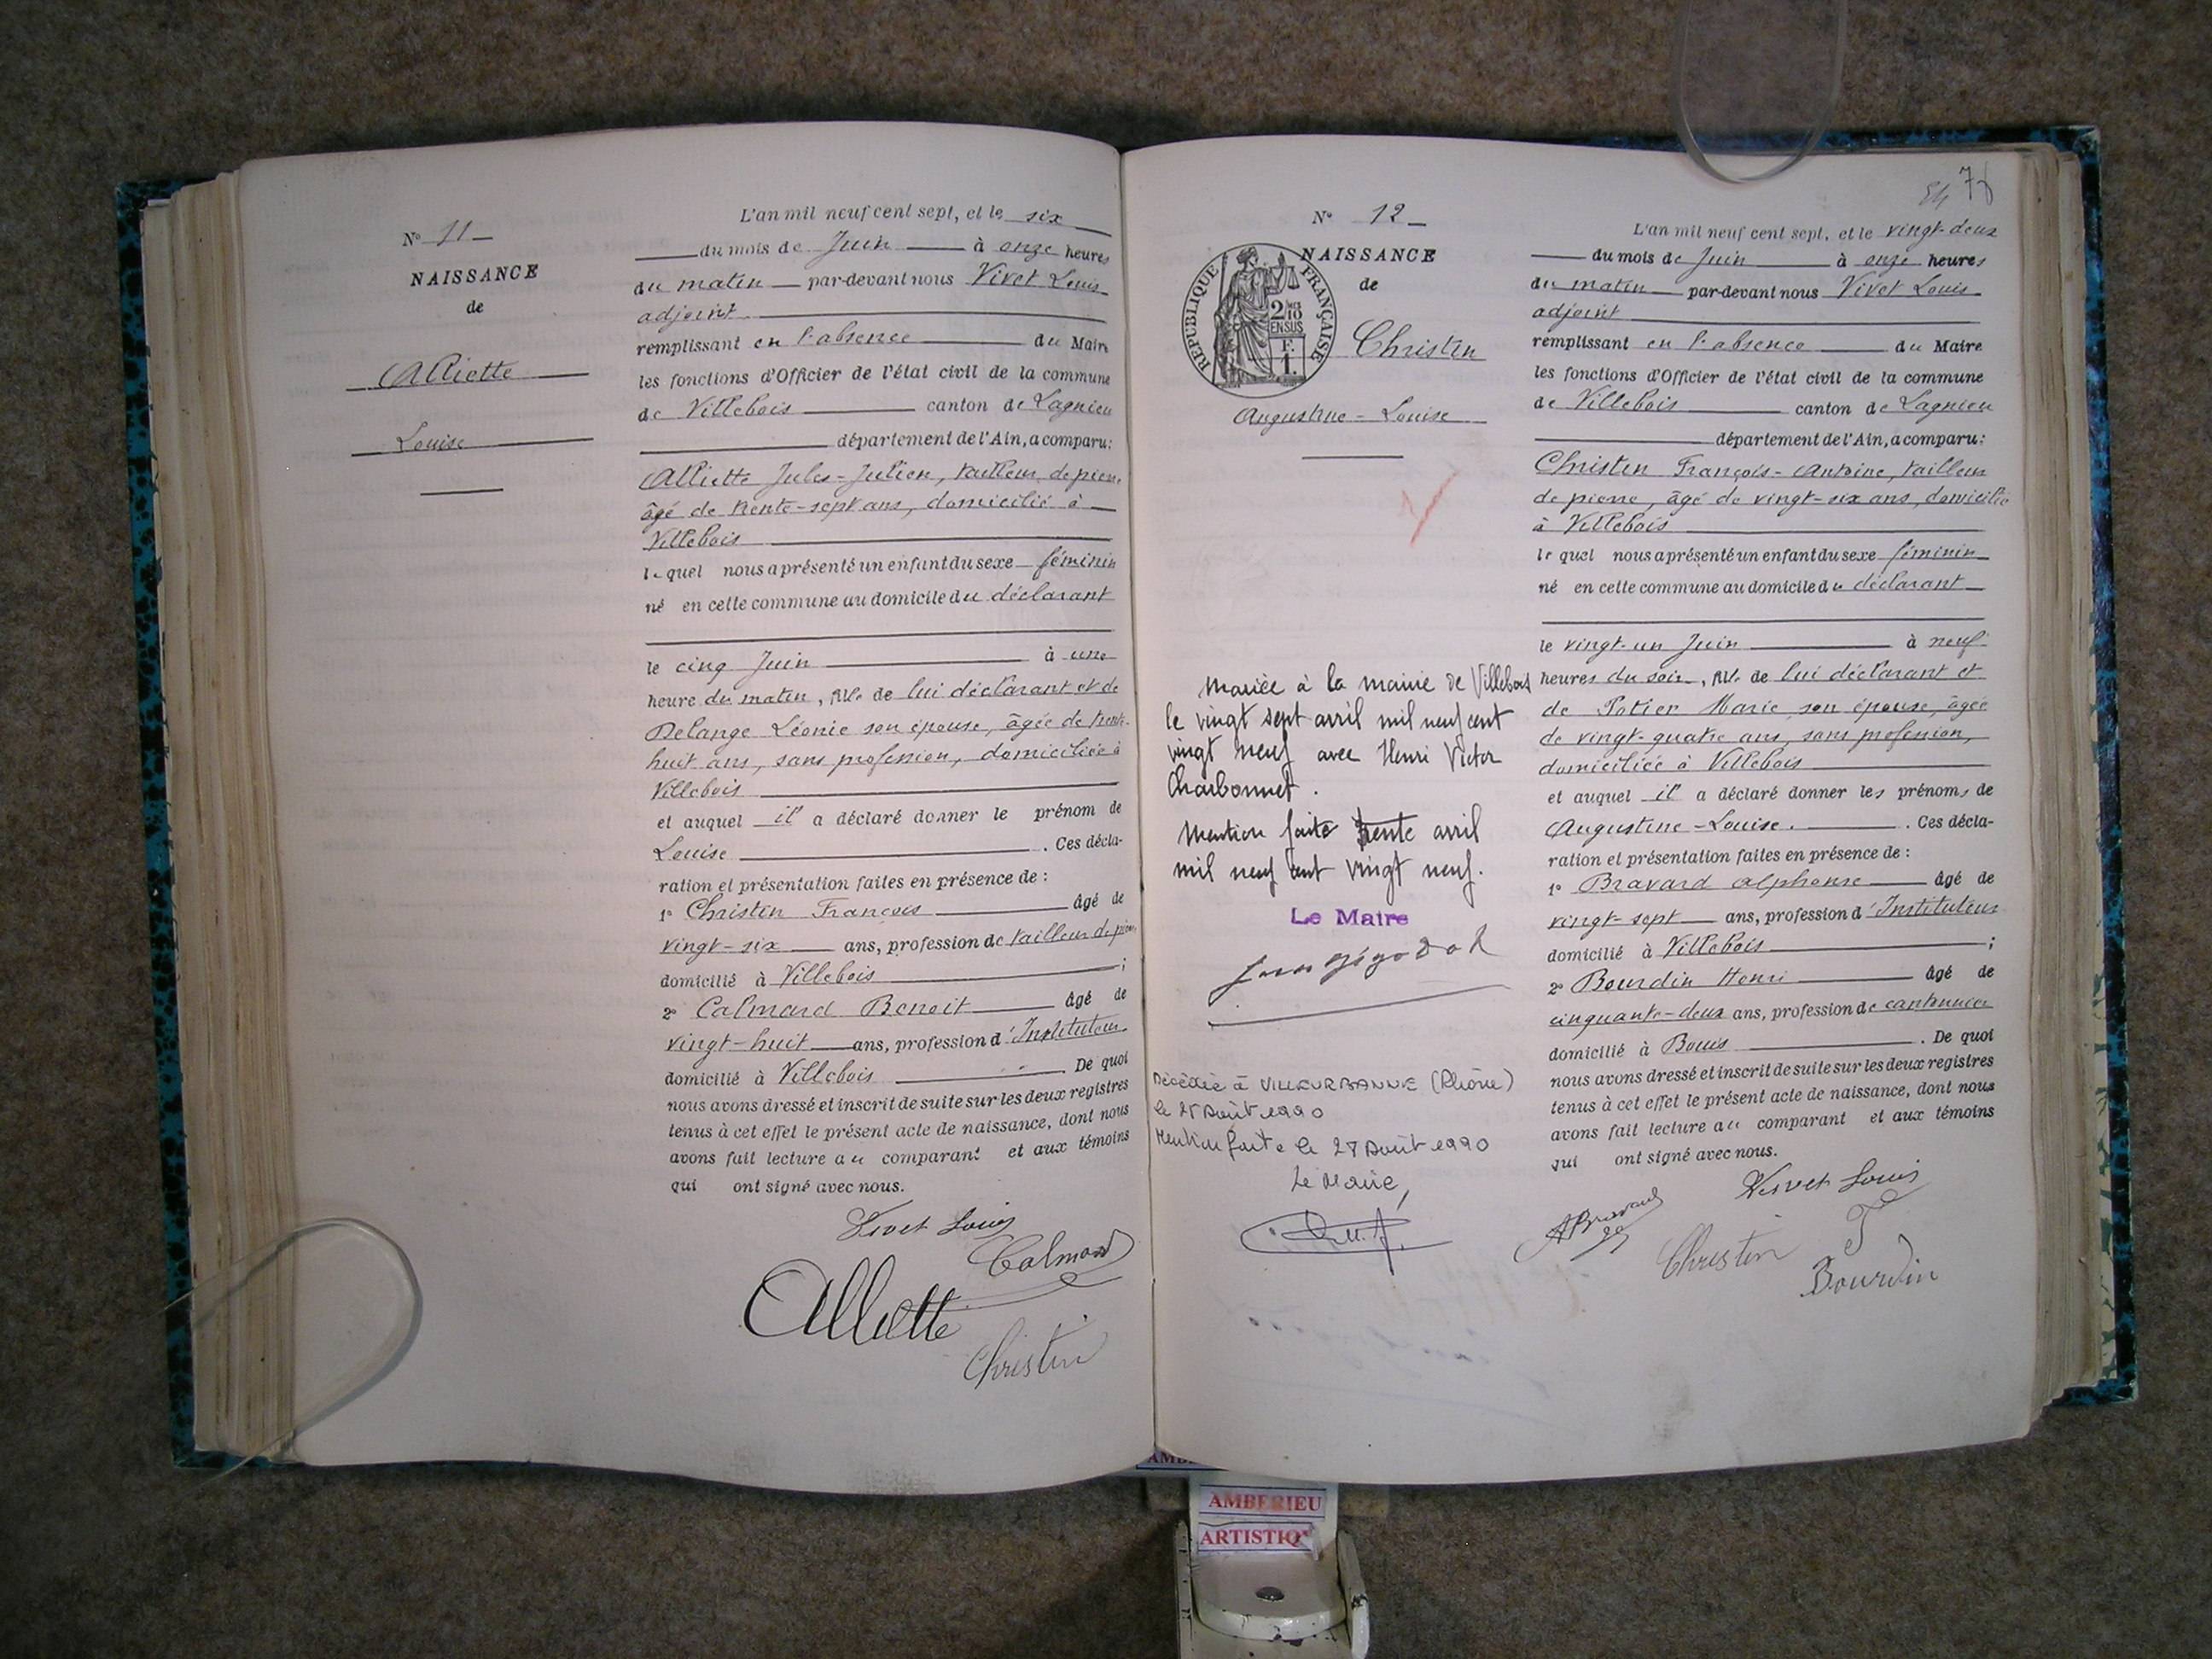 N° 11
NAISSANCE
de
Alliette
Louise
L'an mil neuf cent sept, et le six
du mois de Juin à onze heures
du matin par-devant nous Vivet Louis
adjoint
remplissant en l'absence du Maire
les fonctions d'Officier de l'état civil de la commune
de Villebois canton de Lagnieu
département de l'Ain, a comparu:
Alliette Jules-Julien, tailleur de pierre,
âgé de trente-sept ans, domicilié à
Villebois
lequel nous a présenté un enfant du sexe féminin
né en cette commune au domicile du déclarant
le cinq Juin à une
heure du matin, fille de lui déclarant et de
Delange Léonie son épouse, âgée de trente-
huit ans, sans profession, domiciliée à
Villebois
et auquel il a déclaré donner le prénom de
Louise . Ces décla-
ration et présentation faites en présence de :
1° Christin François âgé de
vingt-six ans, profession de tailleur de pierre
domicilié à Villebois ;
2° Calmard Benoit âgé de
vingt-huit ans, profession d'Instituteur
domicilié à Villebois . De quoi
nous avons dressé et inscrit de suite sur les deux registres
tenus à cet effet le présent acte de naissance, dont nous
avons fait lecture au comparant et aux témoins
qui ont signé avec nous.
Vivet Louis
Calmard
Alliette
Christin
N° 12
NAISSANCE
de
RÉPUBLIQUE FRANÇAISE
2/10
EN SUS
F.
1.
Christin
Augustine-Louise
Mariée à la mairie de Villebois
le vingt sept avril mil neuf cent
vingt neuf avec Henri Victor
Charbonnet.
Mention faite trente avril
mil neuf cent vingt neuf.
Le Maire
Décédée à VILLEURBANNE (Rhône)
le 25 Août 1990
Mention faite le 28 Août 1990
Le Maire,
78
L'an mil neuf cent sept, et le vingt-deux
du mois de Juin à onze heures
du matin par-devant nous Vivet Louis
adjoint
remplissant en l'absence du Maire
les fonctions d'Officier de l'état civil de la commune
de Villebois canton de Lagnieu
département de l'Ain, a comparu:
Christin François-Antoine, tailleur
de pierre, âgé de vingt-six ans, domicilié
à Villebois
lequel nous a présenté un enfant du sexe féminin
né en cette commune au domicile du déclarant
le vingt-un Juin à neuf
heures du soir, fille de lui déclarant et
de Potier Marie son épouse, âgée
de vingt-quatre ans, sans profession,
domiciliée à Villebois
et auquel il a déclaré donner les prénoms de
Augustine-Louise. . Ces décla-
ration et présentation faites en présence de :
1° Bravard Alphonse âgé de
vingt-sept ans, profession d'Instituteur
domicilié à Villebois ;
2° Bourdin Henri âgé de
cinquante-deux ans, profession de cantonnier
domicilié à Bouis . De quoi
nous avons dressé et inscrit de suite sur les deux registres
tenus à cet effet le présent acte de naissance, dont nous
avons fait lecture au comparant et aux témoins
qui ont signé avec nous.
Vivet Louis
ABravard
Christin
Bourdin
AMBERIEU
ARTISTIQ